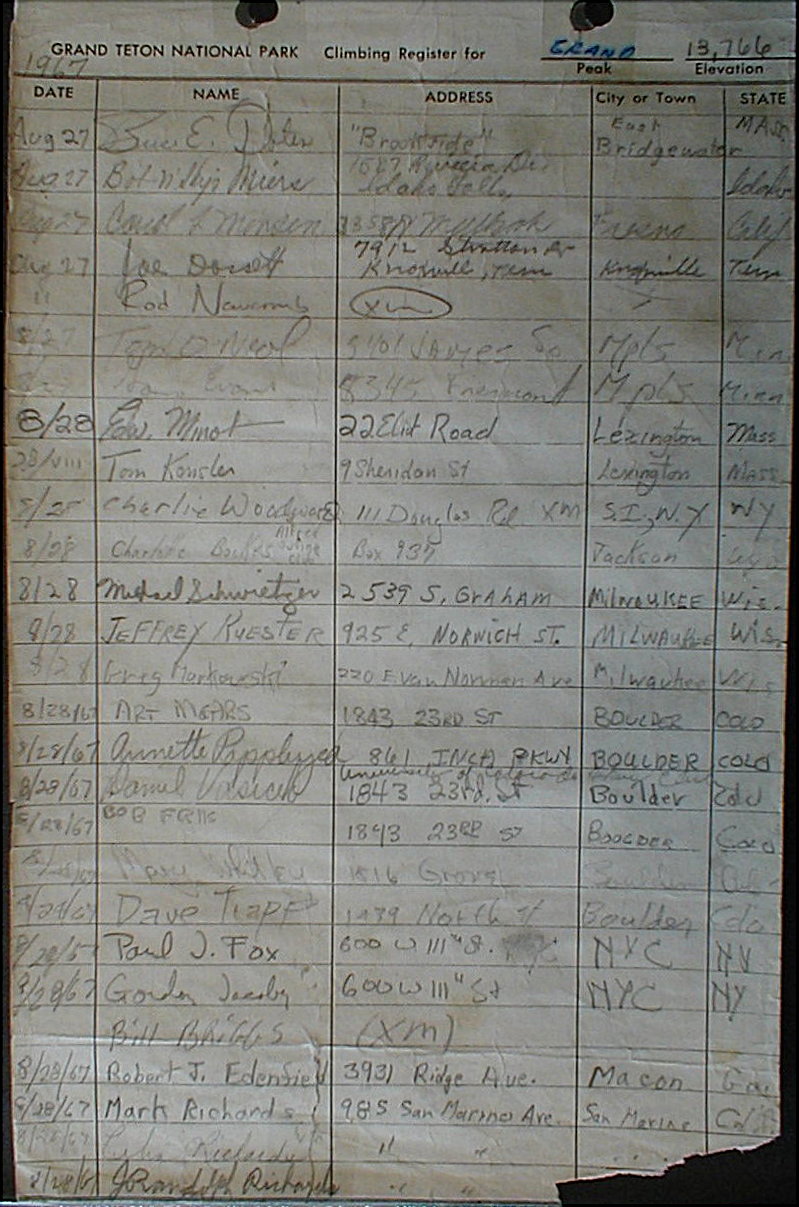 GRAND TETON NATIONAL PARK Climbing Register for GRAND 13,766
1967 Peak Elevation
DATE NAME ADDRESS City or Town STATE
Aug 27 E. "Brookside" East Bridgewater Mass
Aug 27 Miers Idaho Falls, Idaho
Aug 27 Carol Fresno Calif
Aug 27 Joe Dossett 7912 Stratton Dr Knoxville, Tenn Knoxville Tenn
" Rod Newcomb (XM)
8/27 Tom O'Neal James So Mpls Minn
Evans Mpls Minn
8/28 Edw. Minot 22 Eliot Road Lexington Mass
28/VIII Tom Kensler 9 Sheridan St Lexington Mass
8/28 Charlie Woodward 111 Douglas Rd XM S.I., N.Y NY
8/28 Charlotte Box 937 Jackson
8/28 Michael Schwietzer 2539 S. GRAHAM MILWAUKEE Wis.
8/28 JEFFREY KUESTER 925 E. NORWICH ST. MILWAUKEE Wis.
8/28 Greg Markowski 220 E. Van Norman Ave Milwaukee Wis
8/28/67 ART MEARS 1843 23RD ST BOULDER COLO
8/28/67 Annette 861 INCA PKWY BOULDER COLO
University of Colorado
8/28/67 Daniel 1843 23rd. St Boulder Colo
8/28/67 BOB 1843 23RD ST BOULDER Colo
8/28/67 Mary 1516 Grove Boulder Colo
8/28/67 Dave North St Boulder Colo
8/28/67 Paul J. Fox 600 W 111th St. NYC NY
8/28/67 Gordon Jacoby 600 W 111th St NYC NY
Bill BRIGGS (XM)
8/28/67 Robert J. Edenfield 3931 Ridge Ave. Macon Ga.
8/28/67 Mark Richards 985 San Marino Ave. San Marino Calif.
8/28/67 Richards " " " "
8/28/67 J Randolph Richards " "